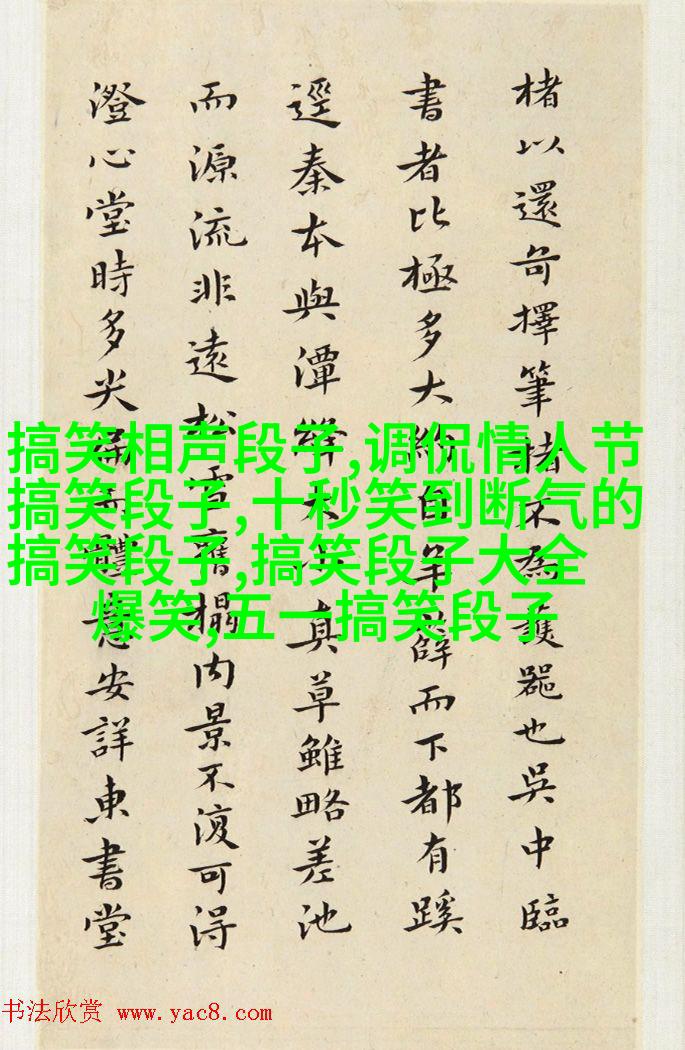 楮以還苟擇筆楮不為護噐也吳中臨
書者比極多大約自羊薛而下都有蹊
逕秦本與潭絳大真草雖略差池
而源流非遠松雪舊搨内景不復可得
澄心堂時多尖而體意安詳東書堂
搞笑相声段子,调侃情人节
搞笑段子,十秒笑到断气的
搞笑段子,搞笑段子大全
爆笑,五一搞笑段子
书法欣赏 www.yac8.com